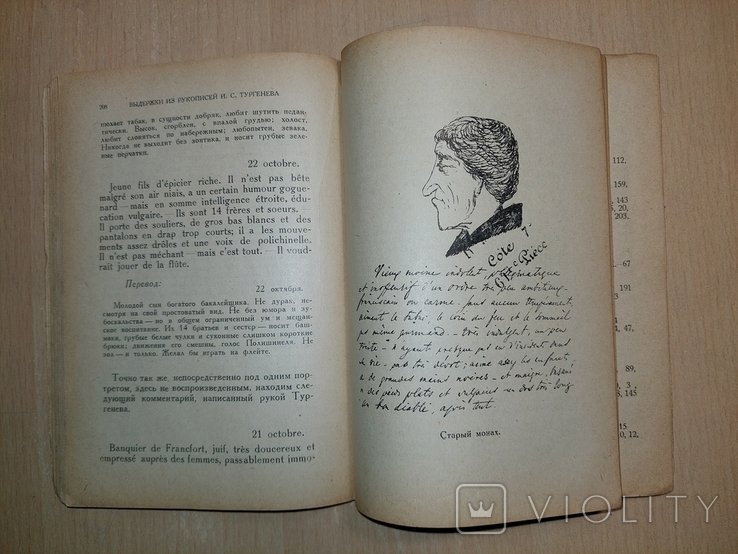 208 ВЫДЕРЖКИ ИЗ РУКОПИСЕЙ И. С. ТУРГЕНЕВА
нюхает табак, в сущности добряк, любит шутить педан-
тически. Высок, сгорблен, с впалой грудью; холост,
любит слоняться по набережным; любопытен, зевака.
Никогда не выходит без зонтика, и носит грубые зеле-
ные перчатки.
22 octobre.
Jeune fils d'épicier riche. Il n'est pas bête
malgré son air niais, a un certain humour gogue-
nard — mais en somme intelligence étroite, édu-
cation vulgaire. — Ils sont 14 frères et soeurs. —
Il porte des souliers, de gros bas blancs et des
pantalons en drap trop courts; il a les mouve-
ments assez drôles et une voix de polichinelle.
Il n'est pas méchant — mais c'est tout. — Il voud-
rait jouer de la flûte.
Перевод:
22 октября.
Молодой сын богатого бакалейщика. Не дурак, не-
смотря на свой простоватый вид. Не без юмора и зу-
боскальства — но в общем ограниченный ум и мещан-
ское воспитание. Их 14 братьев и сестер — носит баш-
маки, грубые белые чулки и суконные слишком короткие
брюки; движения его смешны, голос Полишинеля. Не
зол — и только. Желал бы играть на флейте.
Точно так же, непосредственно под одним пор-
третом, здесь не воспроизведенным, находим сле-
дующий комментарий, написанный рукой Тур-
генева.
21 octobre.
Banquier de Francfort, juif, très doucereux et
empressé auprès des femmes, passablement immo-
Côté
Pièce
Vieux moine indolent, flegmatique
et inoffensif d'un ordre peu ambitieux
franciscain ou carme — sans aucun tempérament,
aiment le tabac, le coin du feu et le sommeil
pas même gourmand — très indulgent, un peu
vie — pas très dévot; aime assez les enfants,
a de grandes mains noires — et maigres,
des pieds plats et vulgaires — un dos très long
un bon diable, après tout.
Старый монах.
112,
159,
143
5, 20,
203.
67
4, 47,
89,
0, 3,
5, 145
15
0, 12,
VIOLITY